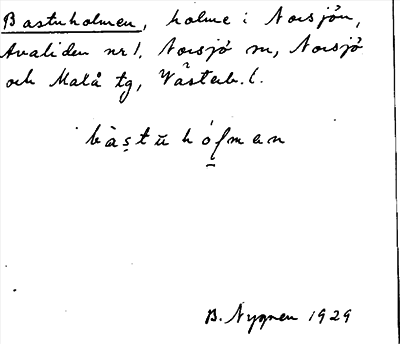 Bastuholmen, holme i Norsjön,
Avaliden nr 1, Norsjö sn, Norsjö
och Malå tg, Västerb. l.
bàstūhólmen
B. Nygren 1929